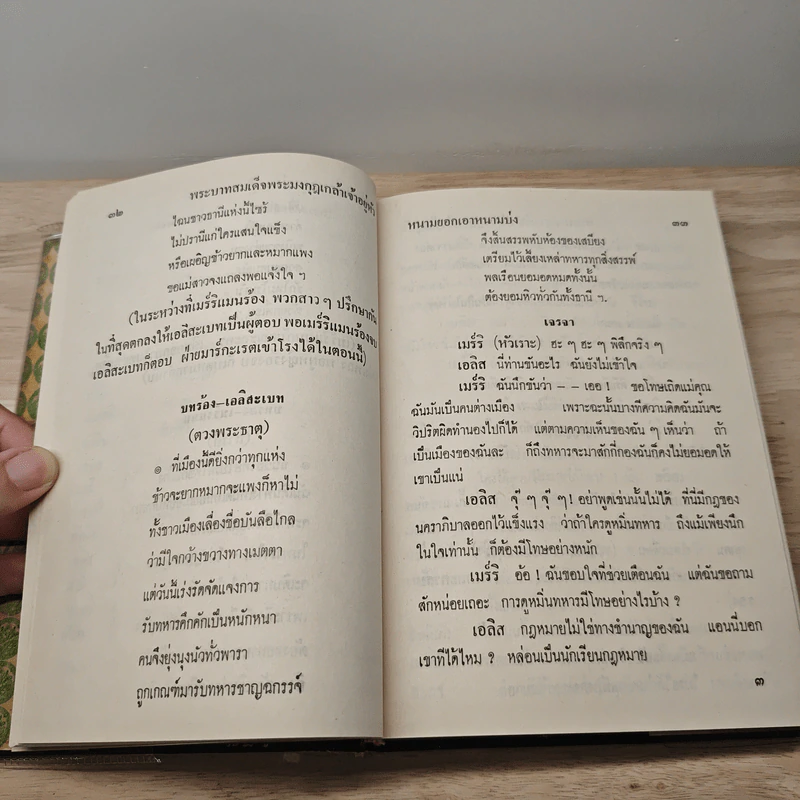 ๓๒ พระบาทสมเด็จพระมงกุฎเกล้าเจ้าอยู่หัว
ใฉนชาวธานีแห่งนี้ไซร้
ไม่ปรานีแก่ใครแสนใจแข็ง
หรือเผอิญข้าวยากและหมากแพง
ขอแม่สาวจงแถลงพอแจ้งใจ ฯ
(ในระหว่างที่เมร์ริแมนร้อง พวกสาว ๆ ปรึกษากัน
ในที่สุดตกลงให้เอลิสะเบทเป็นผู้ตอบ พอเมร์ริแมนร้องจบ
เอลิสะเบทก็ตอบ ฝ่ายมาร์กะเรตเข้าโรงได้ในตอนนี้)
บทร้อง–เอลิสะเบท
(ตวงพระธาตุ)
๏ ที่เมืองนี้ดียิ่งกว่าทุกแห่ง
ข้าวจะยากหมากจะแพงก็หาไม่
ทั้งชาวเมืองเลื่องชื่อบันลือไกล
ว่ามีใจกว้างขวางทางเมตตา
แต่วันนี้เร่งรัดจัดแจงการ
รับทหารคึกคักเป็นหนักหนา
คนจึงยุ่งนุงนัวทั่วพารา
ถูกเกณฑ์มารับทหารชาญฉกรรจ์
หนามยอกเอาหนามบ่ง ๓๓
จึงสิ้นสรรพทับห้องของเสบียง
เตรียมไว้เลี้ยงเหล่าทหารทุกสิ่งสรรพ์
พลเรือนยอมอดหมดทั้งนั้น
ต้องยอมหิวทั่วกันทั้งธานี ฯ.
เจรจา
เมร์ริ (หัวเราะ) ฮะ ๆ ฮะ ๆ พิลึกจริง ๆ
เอลิส นี่ท่านขันอะไร ฉันยังไม่เข้าใจ
เมร์ริ ฉันนึกขันว่า – – เออ ! ขอโทษเถิดแม่คุณ
ฉันมันเป็นคนต่างเมือง เพราะฉะนั้นบางทีความคิดฉันมันจะ
วิปริตผิดทำนองไปก็ได้ แต่ตามความเห็นของฉัน ๆ เห็นว่า ถ้า
เป็นเมืองของฉันละ ก็ถึงทหารจะมาสักกี่กองฉันก็คงไม่ยอมอดให้
เขาเป็นแน่
เอลิส จุ๊ ๆ จุ๊ ๆ ! อย่าพูดเช่นนั้นไม่ได้ ที่นี่มีกฎของ
นคราภิบาลออกไว้แข็งแรง ว่าถ้าใครดูหมิ่นทหาร ถึงแม้เพียงนึก
ในใจเท่านั้น ก็ต้องมีโทษอย่างหนัก
เมร์ริ อ้อ ! ฉันขอบใจที่ช่วยเตือนฉัน แต่ฉันขอถาม
สักหน่อยเถอะ การดูหมิ่นทหารมีโทษอย่างไรบ้าง ?
เอลิส กฎหมายไม่ใช่ทางชำนาญของฉัน แอนนี่บอก
เขาทีได้ไหม ? หล่อนเป็นนักเรียนกฎหมาย
๓